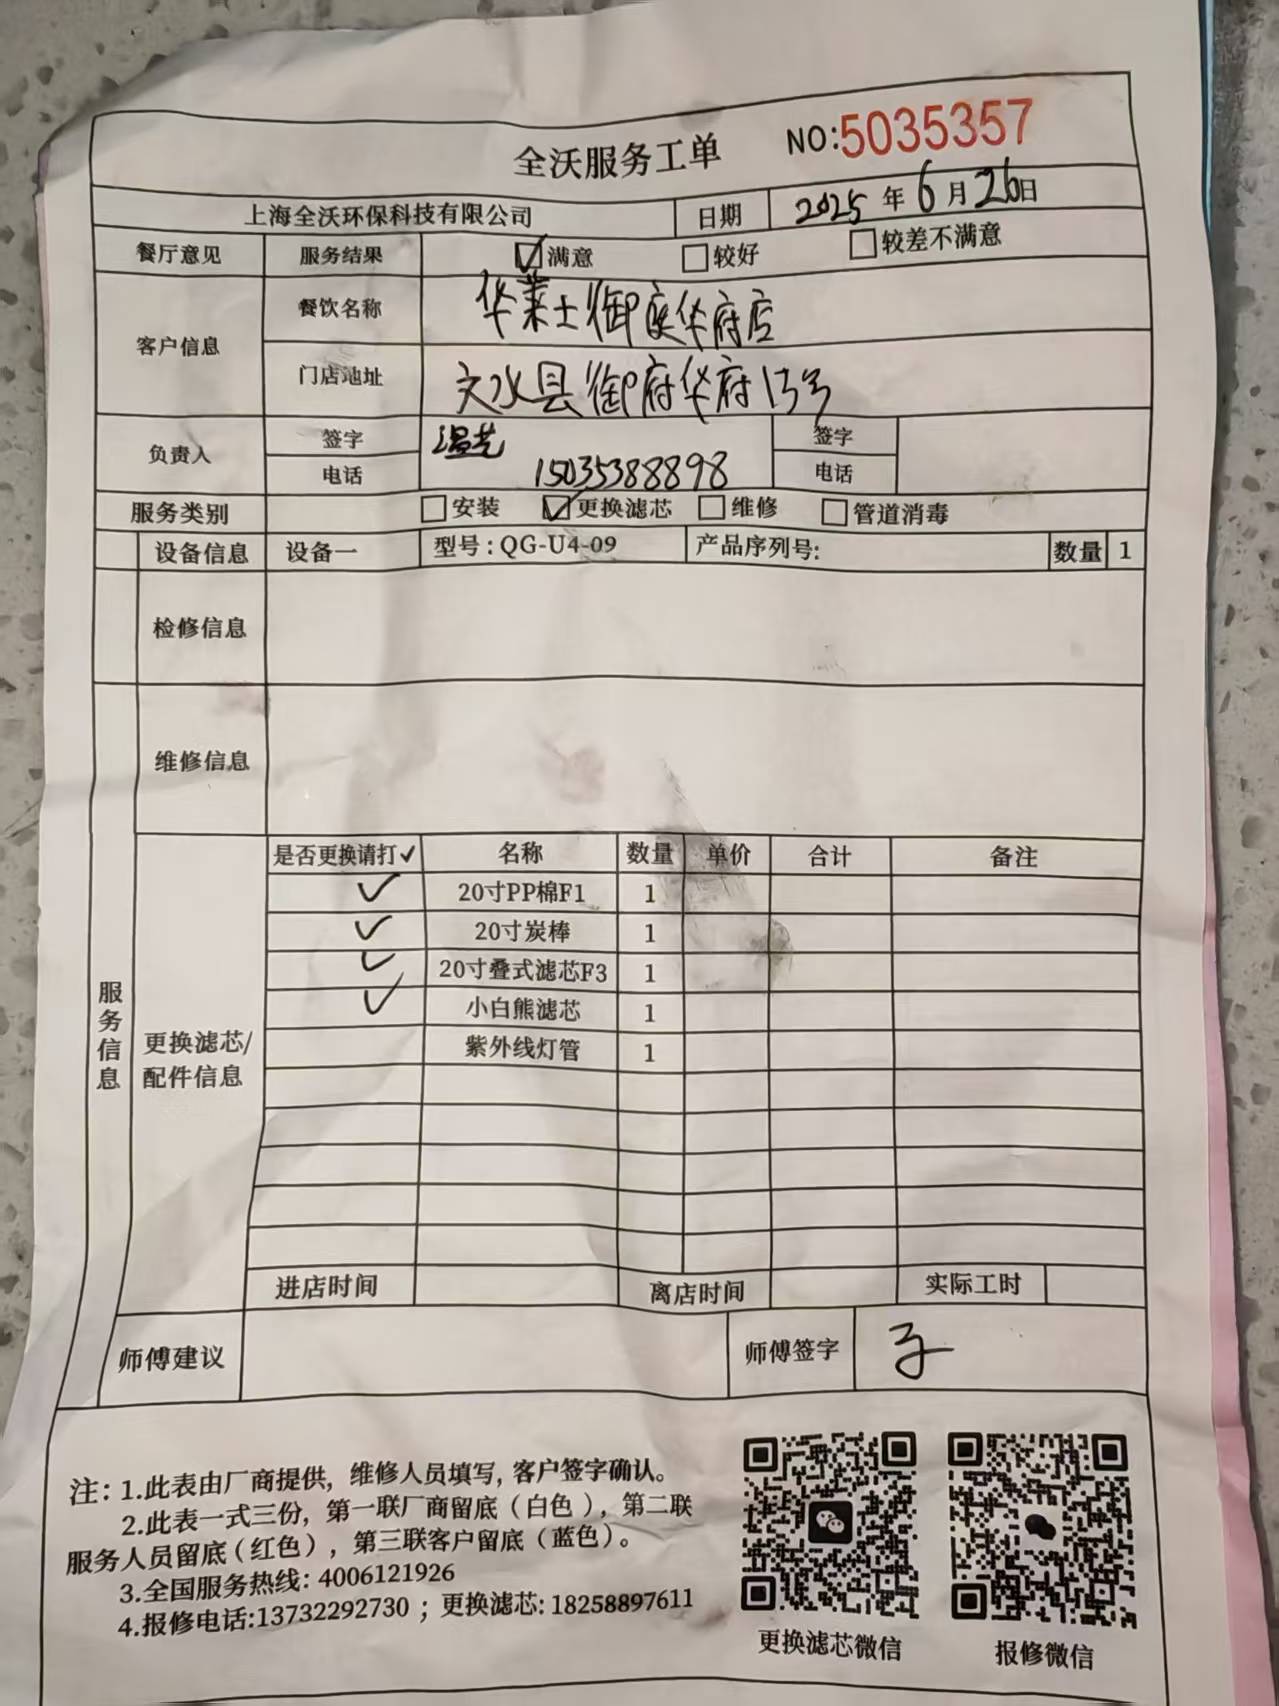 全沃服务工单 NO:5035357
上海全沃环保科技有限公司 日期 2025年6月26日
餐厅意见 服务结果 ☑满意 □较好 □较差不满意
客户信息 餐饮名称 华莱士御庭华府店
门店地址 文水县御府华府13号
负责人 签字 温艺 签字
电话 15035388898 电话
服务类别 □安装 ☑更换滤芯 □维修 □管道消毒
设备信息 设备一 型号:QG-U4-09 产品序列号: 数量 1
检修信息
维修信息
服务信息
更换滤芯/
配件信息
是否更换请打✓ 名称 数量 单价 合计 备注
✓ 20寸PP棉F1 1
✓ 20寸炭棒 1
✓ 20寸叠式滤芯F3 1
✓ 小白熊滤芯 1
紫外线灯管 1
进店时间 离店时间 实际工时
师傅建议 师傅签字
注:1.此表由厂商提供,维修人员填写,客户签字确认。
2.此表一式三份,第一联厂商留底(白色),第二联
服务人员留底(红色),第三联客户留底(蓝色)。
3.全国服务热线:4006121926
4.报修电话:13732292730;更换滤芯:18258897611
更换滤芯微信 报修微信